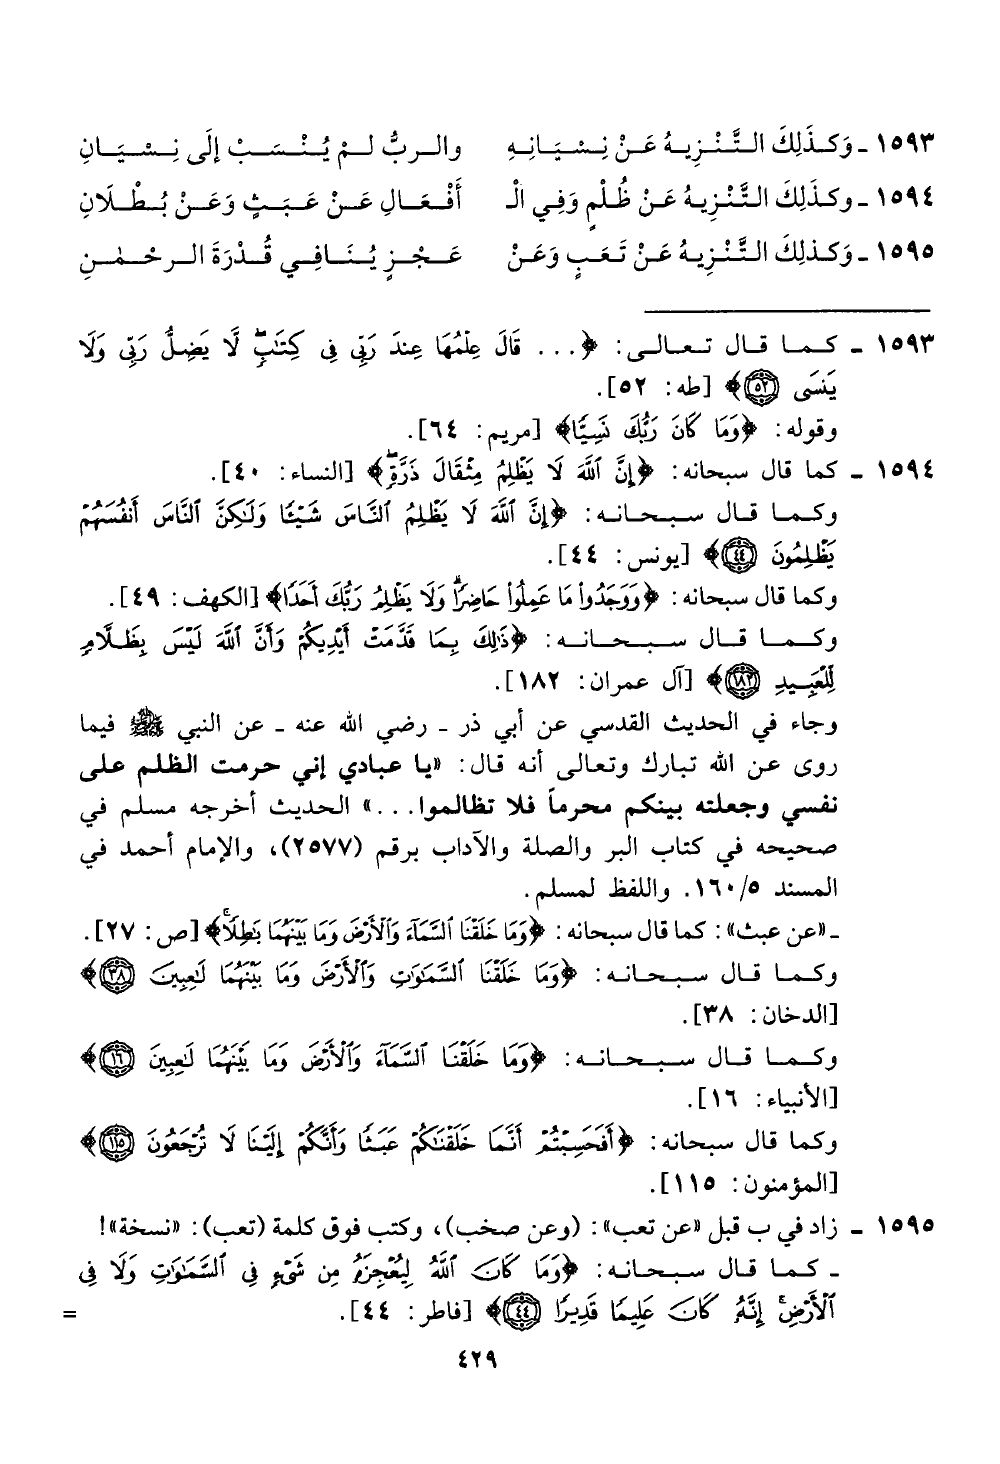 ١٥٩٣ ـ وَكَذَلِكَ التَّنْزِيهُ عَنْ نِسْيَانِهِ والربُّ لمْ يُنْسَبْ إلَى نِسْيَانِ
١٥٩٤ ـ وكذَلِكَ التَّنْزِيهُ عَنْ ظُلْمٍ وَفِي الْ أَفْعَالِ عَنْ عَبَثٍ وَعَنْ بُطْلَانِ
١٥٩٥ ـ وَكَذلِكَ التَّنْزِيهُ عَنْ تَعَبٍ وَعَنْ عَجْزٍ يُنَافِي قُدْرَةَ الرحْمٰنِ
١٥٩٣ ـ كما قال تعالى: ﴿... قَالَ عِلْمُهَا عِندَ رَبِّى فِى كِتَٰبٍۖ لَّا يَضِلُّ رَبِّى وَلَا
يَنسَى ﴿٥٢﴾﴾ [طه: ٥٢].
وقوله: ﴿وَمَا كَانَ رَبُّكَ نَسِيًّا﴾ [مريم: ٦٤].
١٥٩٤ ـ كما قال سبحانه: ﴿إِنَّ ٱللَّهَ لَا يَظْلِمُ مِثْقَالَ ذَرَّةٍۖ﴾ [النساء: ٤٠].
وكما قال سبحانه: ﴿إِنَّ ٱللَّهَ لَا يَظْلِمُ ٱلنَّاسَ شَيْـًٔا وَلَٰكِنَّ ٱلنَّاسَ أَنفُسَهُمْ
يَظْلِمُونَ ﴿٤٤﴾﴾ [يونس: ٤٤].
وكما قال سبحانه: ﴿وَوَجَدُوا۟ مَا عَمِلُوا۟ حَاضِرًاۗ وَلَا يَظْلِمُ رَبُّكَ أَحَدًا﴾ [الكهف: ٤٩].
وكما قال سبحانه: ﴿ذَٰلِكَ بِمَا قَدَّمَتْ أَيْدِيكُمْ وَأَنَّ ٱللَّهَ لَيْسَ بِظَلَّامٍ
لِّلْعَبِيدِ ﴿١٨٢﴾﴾ [آل عمران: ١٨٢].
وجاء في الحديث القدسي عن أبي ذر ـ رضي الله عنه ـ عن النبي ﷺ فيما
روى عن الله تبارك وتعالى أنه قال: «يا عبادي إني حرمت الظلم على
نفسي وجعلته بينكم محرماً فلا تظالموا...» الحديث أخرجه مسلم في
صحيحه في كتاب البر والصلة والآداب برقم (٢٥٧٧)، والإمام أحمد في
المسند ١٦٠/٥. واللفظ لمسلم.
ـ «عن عبث»: كما قال سبحانه: ﴿وَمَا خَلَقْنَا ٱلسَّمَآءَ وَٱلْأَرْضَ وَمَا بَيْنَهُمَا بَٰطِلًاۚ﴾ [ص: ٢٧].
وكما قال سبحانه: ﴿وَمَا خَلَقْنَا ٱلسَّمَٰوَٰتِ وَٱلْأَرْضَ وَمَا بَيْنَهُمَا لَٰعِبِينَ ﴿٣٨﴾﴾
[الدخان: ٣٨].
وكما قال سبحانه: ﴿وَمَا خَلَقْنَا ٱلسَّمَآءَ وَٱلْأَرْضَ وَمَا بَيْنَهُمَا لَٰعِبِينَ ﴿١٦﴾﴾
[الأنبياء: ١٦].
وكما قال سبحانه: ﴿أَفَحَسِبْتُمْ أَنَّمَا خَلَقْنَٰكُمْ عَبَثًا وَأَنَّكُمْ إِلَيْنَا لَا تُرْجَعُونَ ﴿١١٥﴾﴾
[المؤمنون: ١١٥].
١٥٩٥ ـ زاد في ب قبل «عن تعب»: (وعن صخب)، وكتب فوق كلمة (تعب): «نسخة»!
ـ كما قال سبحانه: ﴿وَمَا كَانَ ٱللَّهُ لِيُعْجِزَهُۥ مِن شَىْءٍ فِى ٱلسَّمَٰوَٰتِ وَلَا فِى
ٱلْأَرْضِۚ إِنَّهُۥ كَانَ عَلِيمًا قَدِيرًا ﴿٤٤﴾﴾ [فاطر: ٤٤]. =
٤٢٩